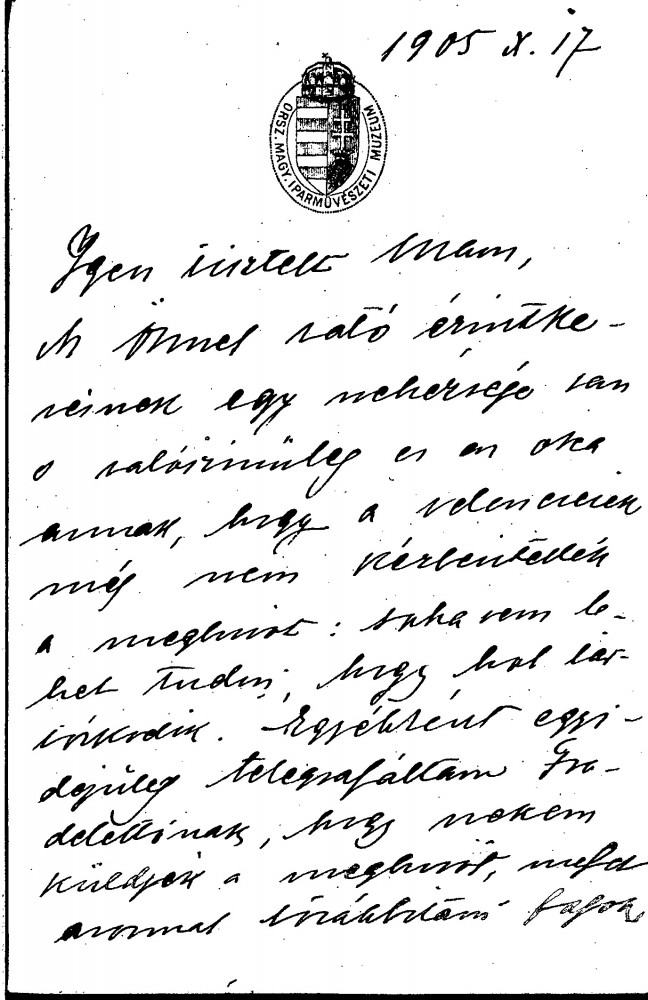 1905 X. 17
ORSZ. MAGY. IPARMŰVÉSZETI MUZEUM
Igen tisztelt Uram,
Az Önnel való érintke-
zésnek egy nehézsége van
s valószinüleg ez az oka
annak, hogy a velencziek
még nem kézbesítették
a meghivót: soha sem le-
het tudni, hogy hol tar-
tózkodik. Egyébként egyi-
dejüleg telegrafáltam Fra-
delettónak, hogy nekem
küldjék a meghivót, melyet
azonnal továbbítani fogok,